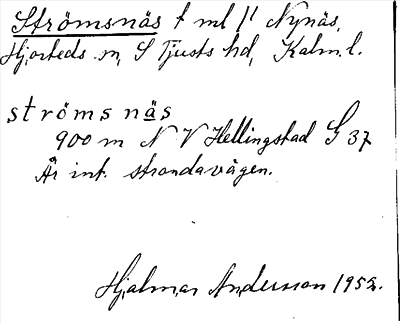 Strömsnäs t ml /1 Nynäs,
Hjorteds sn, S Tjusts hd, Kalm. l.
strömsnäs
900 m N V Hellingstad G 37
Är int. strandavägen.
Hjalmar Andersson 1952.